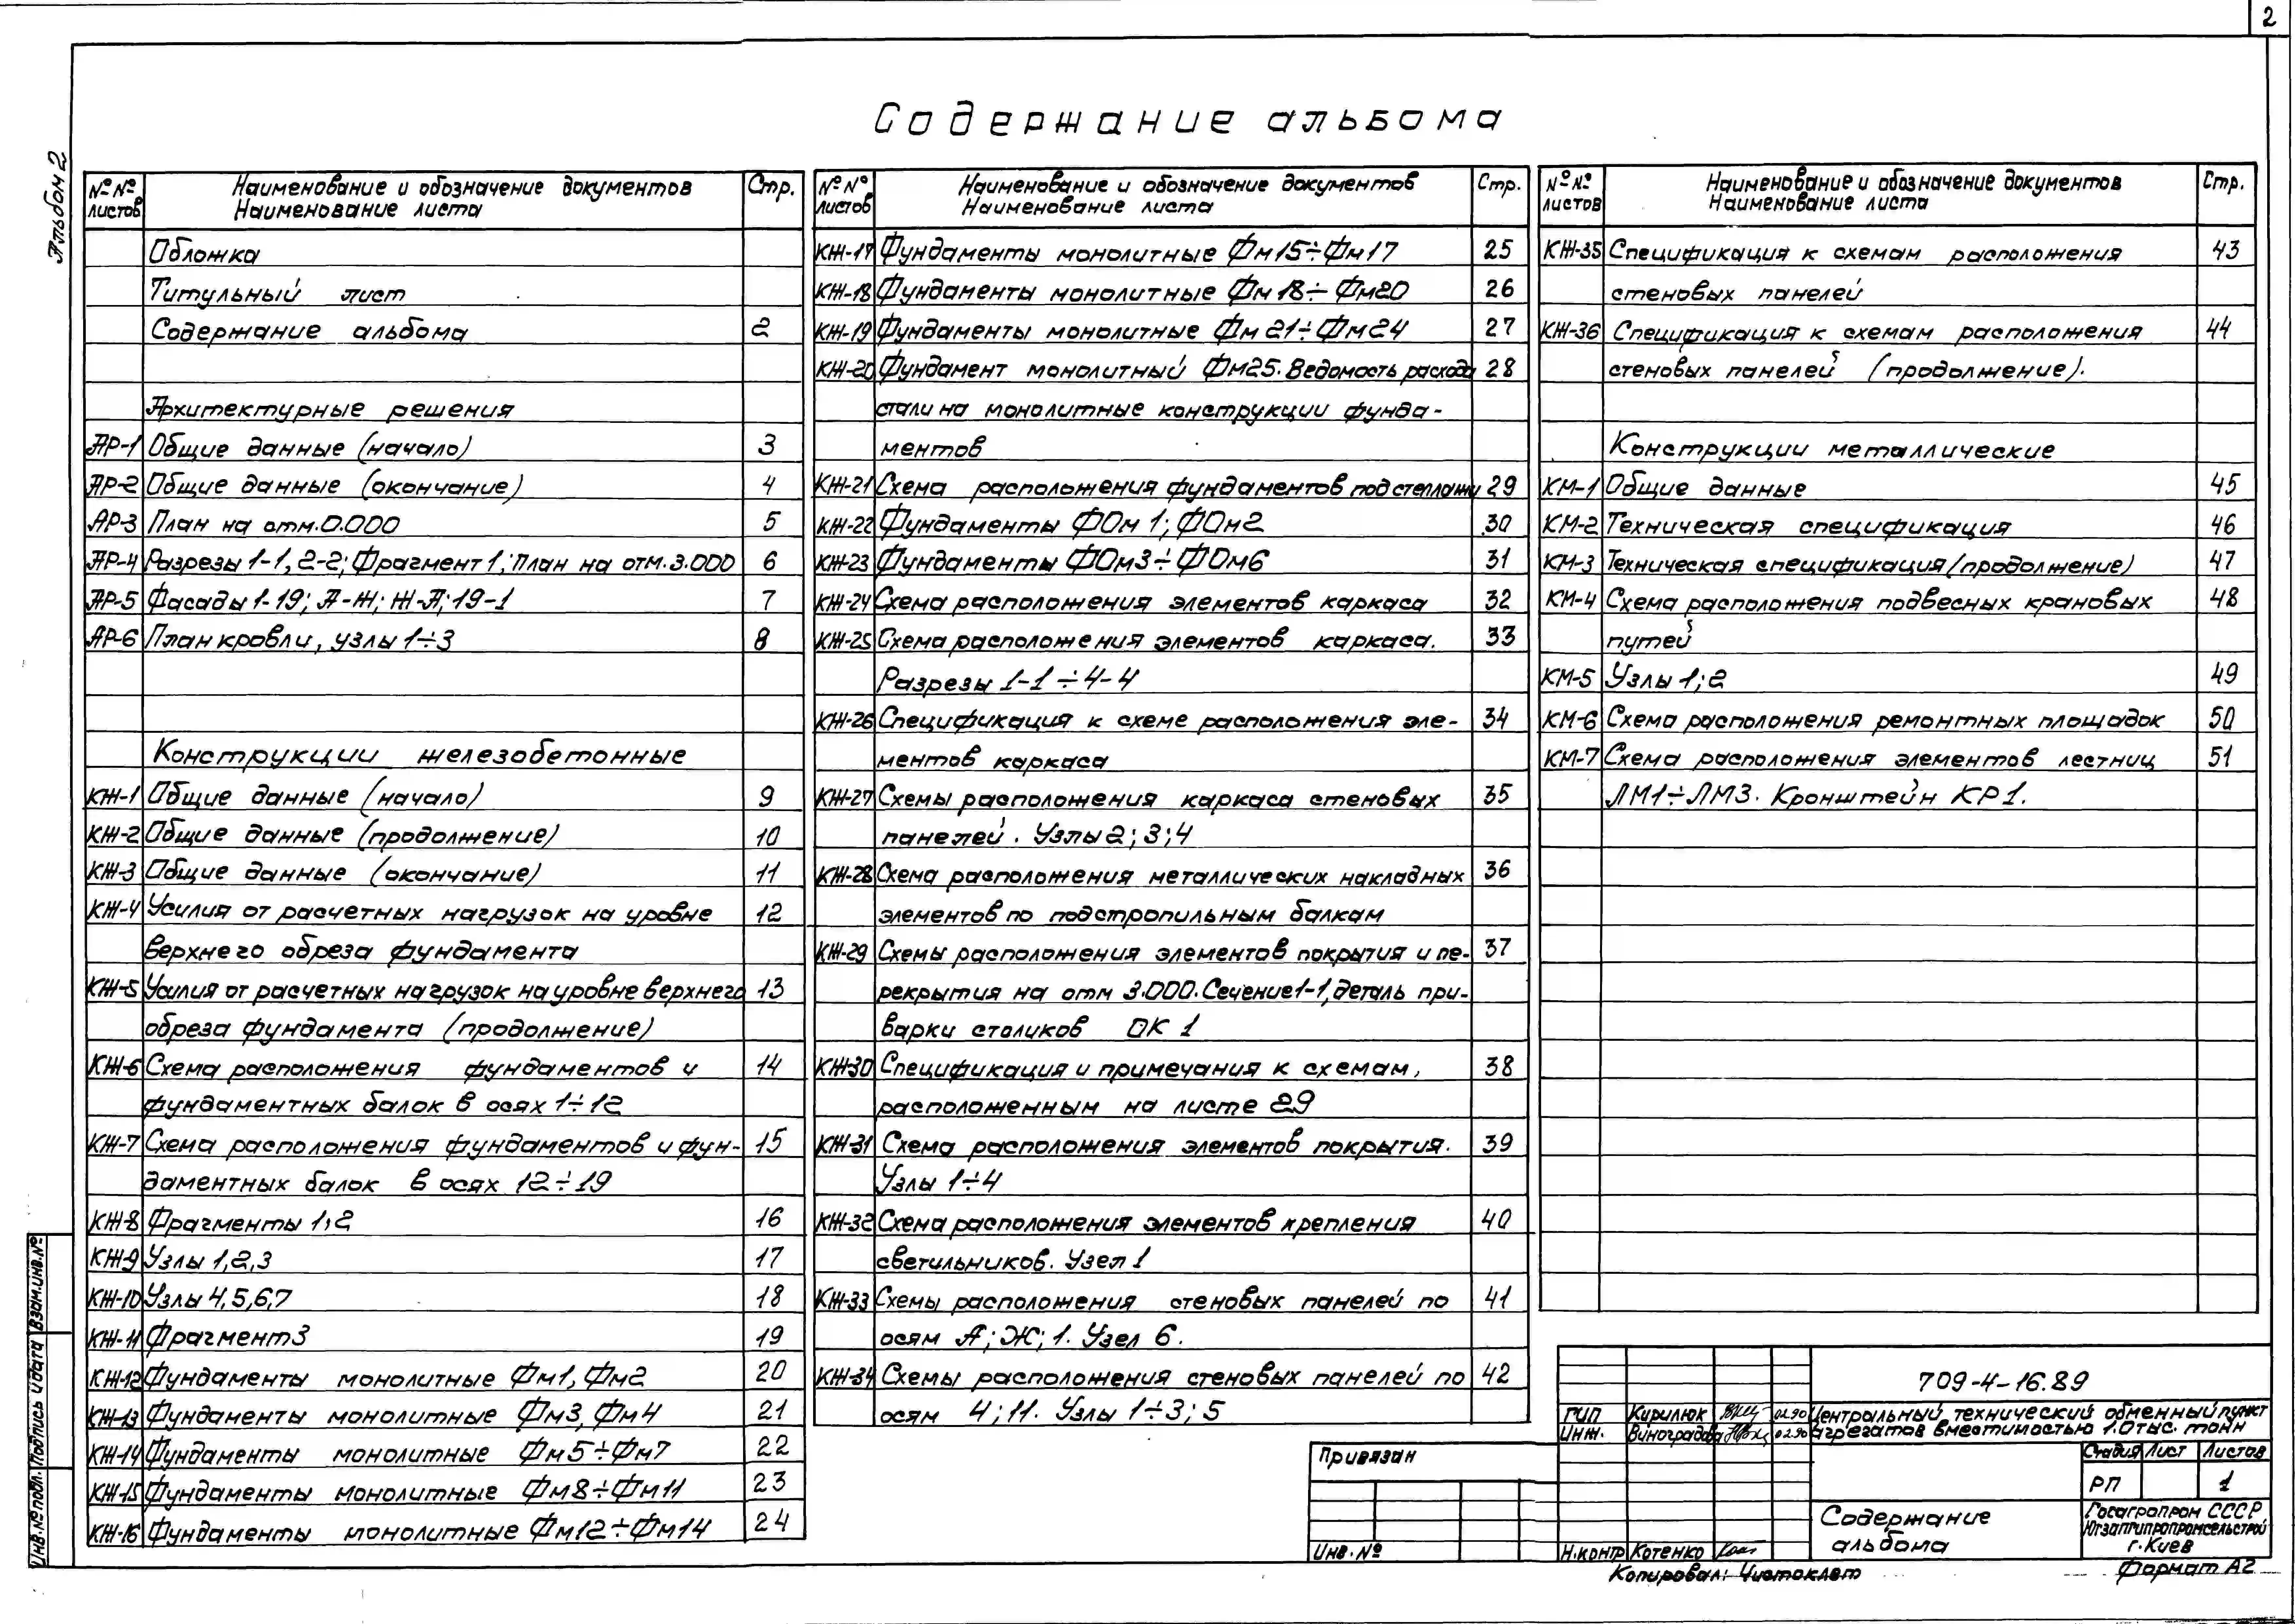 2
Альбом 2
Содержание альбома
№№ листов Наименование и обозначение документов Наименование листа Стр.
Обложка
Титульный лист
Содержание альбома 2
Архитектурные решения
АР-1 Общие данные (начало) 3
АР-2 Общие данные (окончание) 4
АР-3 План на отм. 0.000 5
АР-4 Разрезы 1-1, 2-2; Фрагмент 1; План на отм. 3.000 6
АР-5 Фасады 1-19; А-Ж; Ж-А; 19-1 7
АР-6 План кровли, узлы 1÷3 8
Конструкции железобетонные
КЖ-1 Общие данные (начало) 9
КЖ-2 Общие данные (продолжение) 10
КЖ-3 Общие данные (окончание) 11
КЖ-4 Усилия от расчетных нагрузок на уровне 12
верхнего обреза фундамента
КЖ-5 Усилия от расчетных нагрузок на уровне верхнего 13
обреза фундамента (продолжение)
КЖ-6 Схема расположения фундаментов и 14
фундаментных балок в осях 1÷12
КЖ-7 Схема расположения фундаментов и фун- 15
даментных балок в осях 12÷19
КЖ-8 Фрагменты 1,2 16
КЖ-9 Узлы 1,2,3 17
КЖ-10 Узлы 4,5,6,7 18
КЖ-11 Фрагмент 3 19
КЖ-12 Фундаменты монолитные Фм1, Фм2 20
КЖ-13 Фундаменты монолитные Фм3, Фм4 21
КЖ-14 Фундаменты монолитные Фм5÷Фм7 22
КЖ-15 Фундаменты монолитные Фм8÷Фм11 23
КЖ-16 Фундаменты монолитные Фм12÷Фм14 24
№№ листов Наименование и обозначение документов Наименование листа Стр.
КЖ-17 Фундаменты монолитные Фм15÷Фм17 25
КЖ-18 Фундаменты монолитные Фм18÷Фм20 26
КЖ-19 Фундаменты монолитные Фм21÷Фм24 27
КЖ-20 Фундамент монолитный Фм25. Ведомость расхода 28
стали на монолитные конструкции фунда-
ментов
КЖ-21 Схема расположения фундаментов под стеллажи 29
КЖ-22 Фундаменты ФОм1; ФОм2 30
КЖ-23 Фундаменты ФОм3÷ФОм6 31
КЖ-24 Схема расположения элементов каркаса 32
КЖ-25 Схема расположения элементов каркаса. 33
Разрезы 1-1÷4-4
КЖ-26 Спецификация к схеме расположения эле- 34
ментов каркаса
КЖ-27 Схемы расположения каркаса стеновых 35
панелей. Узлы 2; 3; 4
КЖ-28 Схема расположения металлических накладных 36
элементов по подстропильным балкам
КЖ-29 Схемы расположения элементов покрытия и пе- 37
рекрытия на отм 3.000. Сечение 1-1, деталь при-
варки столиков ОК 1
КЖ-30 Спецификация и примечания к схемам, 38
расположенным на листе 29
КЖ-31 Схема расположения элементов покрытия. 39
Узлы 1÷4
КЖ-32 Схема расположения элементов крепления 40
светильников. Узел 1
КЖ-33 Схемы расположения стеновых панелей по 41
осям А; Ж; 1. Узел 6.
КЖ-34 Схемы расположения стеновых панелей по 42
осям 4; 11. Узлы 1÷3; 5
№№ листов Наименование и обозначение документов Наименование листа Стр.
КЖ-35 Спецификация к схемам расположения 43
стеновых панелей
КЖ-36 Спецификация к схемам расположения 44
стеновых панелей (продолжение).
Конструкции металлические
КМ-1 Общие данные 45
КМ-2 Техническая спецификация 46
КМ-3 Техническая спецификация (продолжение) 47
КМ-4 Схема расположения подвесных крановых 48
путей
КМ-5 Узлы 1; 2 49
КМ-6 Схема расположения ремонтных площадок 50
КМ-7 Схема расположения элементов лестниц 51
ЛМ1÷ЛМ3. Кронштейн КР1.
709-4-16.89
ГИП Кирилюк 02.90 Центральный технический обменный пункт
Инж. Виноградова 02.90 агрегатов вместимостью 1.0 тыс. тонн
Стадия Лист Листов
РП 1
Содержание альбома
Госагропром СССР
Югзапгипропромсельстрой
г. Киев
Н.контр Котенко
Привязан
Инв. №
Копировал: Чистоклет
Формат А2
Инв. № подл. Подпись и дата Взам.инв.№